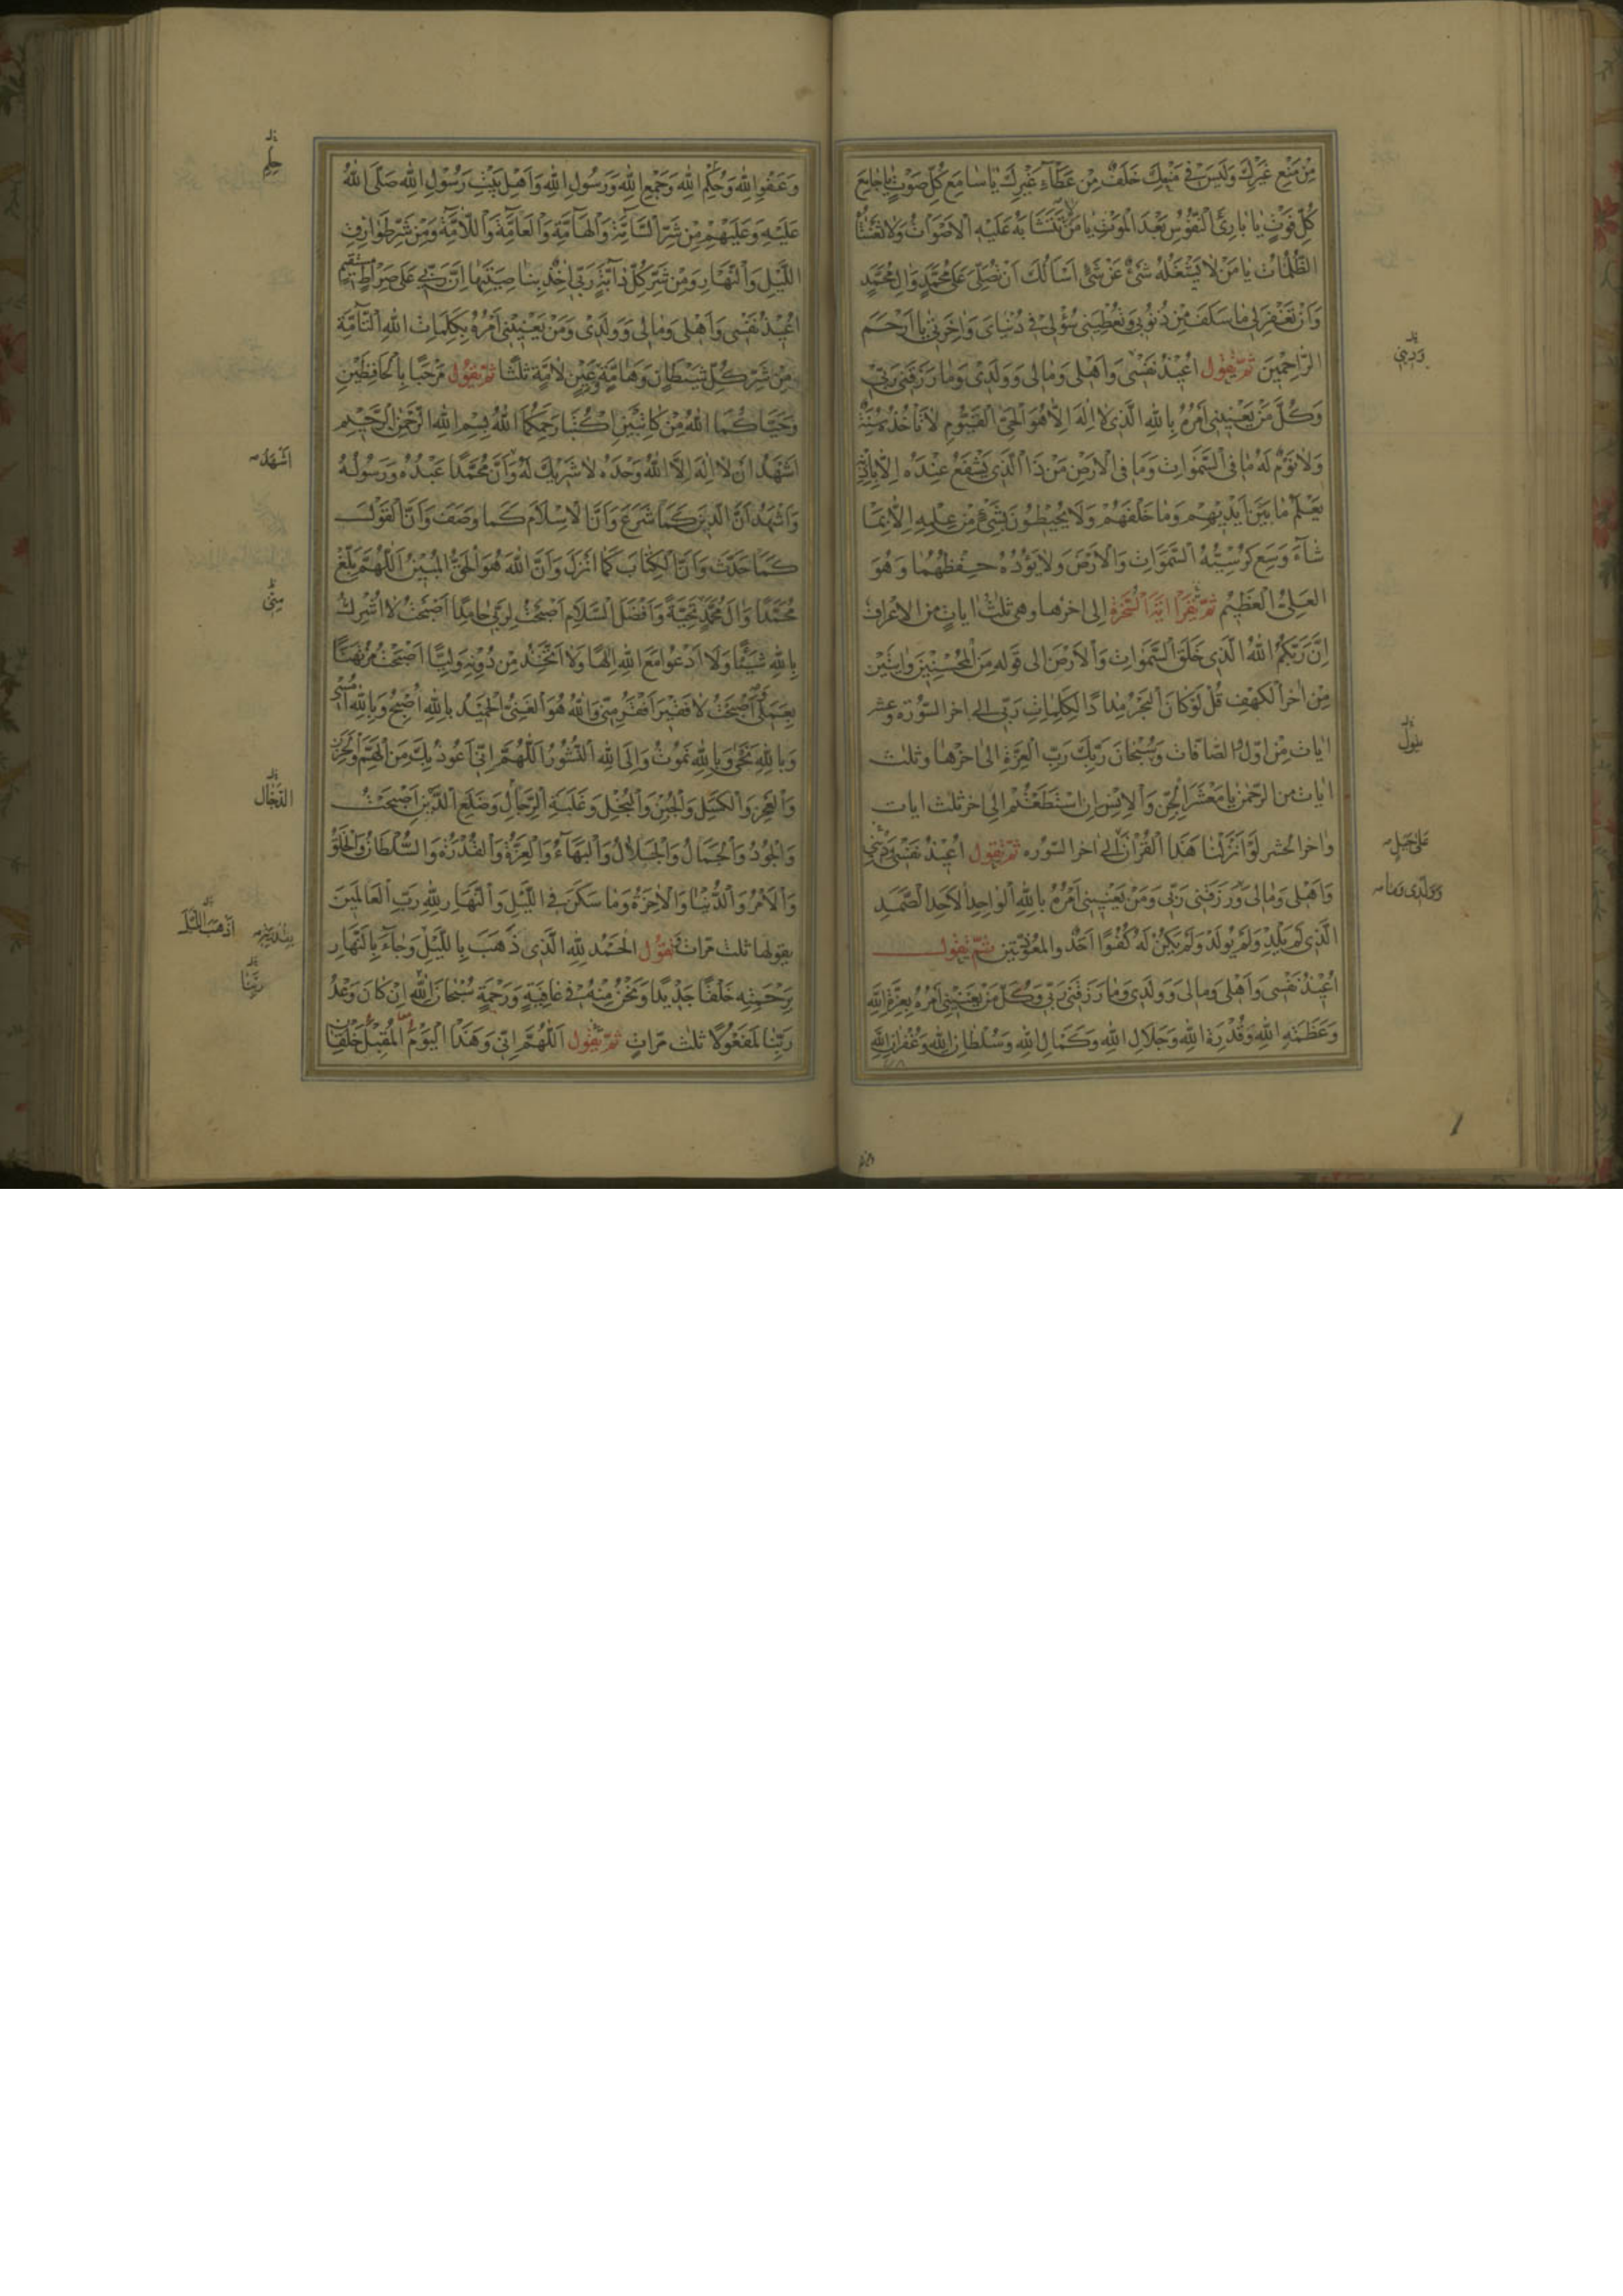 مِنْ مَنْعِ غَيْرِكَ وَلَيْسَ فِي مَنْعِكَ خَلَفٌ مِنْ عَطَاءِ غَيْرِكَ يَا سَامِعَ كُلِّ صَوْتٍ يَا جَامِعَ
كُلِّ فَوْتٍ يَا بَارِئَ النُّفُوسِ بَعْدَ الْمَوْتِ يَا مَنْ لَا تَتَشَابَهُ عَلَيْهِ الْأَصْوَاتُ وَلَا تَغْشَاهُ
الظُّلُمَاتُ يَا مَنْ لَا يَشْغَلُهُ شَيْءٌ عَنْ شَيْءٍ أَسْأَلُكَ أَنْ تُصَلِّيَ عَلَى مُحَمَّدٍ وَآلِ مُحَمَّدٍ
وَأَنْ تَغْفِرَ لِي مَا سَلَفَ مِنْ ذُنُوبِي وَتُعْطِيَنِي سُؤْلِي فِي دُنْيَايَ وَآخِرَتِي يَا أَرْحَمَ
الرَّاحِمِينَ ثُمَّ يَقُولُ أُعِيذُ نَفْسِي وَأَهْلِي وَمَالِي وَوَلَدِي وَمَا رَزَقَنِي رَبِّي
وَكُلَّ مَنْ يَعْنِينِي أَمْرُهُ بِاللهِ الَّذِي لَا إِلَهَ إِلَّا هُوَ الْحَيُّ الْقَيُّومُ لَا تَأْخُذُهُ سِنَةٌ
وَلَا نَوْمٌ لَهُ مَا فِي السَّمَوَاتِ وَمَا فِي الْأَرْضِ مَنْ ذَا الَّذِي يَشْفَعُ عِنْدَهُ إِلَّا بِإِذْنِهِ
يَعْلَمُ مَا بَيْنَ أَيْدِيهِمْ وَمَا خَلْفَهُمْ وَلَا يُحِيطُونَ بِشَيْءٍ مِنْ عِلْمِهِ إِلَّا بِمَا
شَاءَ وَسِعَ كُرْسِيُّهُ السَّمَوَاتِ وَالْأَرْضَ وَلَا يَؤُدُهُ حِفْظُهُمَا وَهُوَ
الْعَلِيُّ الْعَظِيمُ ثُمَّ يَقْرَأُ آيَةَ السُّخْرَةِ إِلَى آخِرِهَا وَهِيَ ثَلَاثُ آيَاتٍ مِنَ الْأَعْرَافِ
إِنَّ رَبَّكُمُ اللهُ الَّذِي خَلَقَ السَّمَوَاتِ وَالْأَرْضَ إِلَى قَوْلِهِ مِنَ الْمُحْسِنِينَ وَآيَتَيْنِ
مِنْ آخِرِ الْكَهْفِ قُلْ لَوْ كَانَ الْبَحْرُ مِدَادًا لِكَلِمَاتِ رَبِّي إِلَى آخِرِ السُّورَةِ وَعَشْرَ
آيَاتٍ مِنْ أَوَّلِ الصَّافَّاتِ وَسُبْحَانَ رَبِّكَ رَبِّ الْعِزَّةِ إِلَى آخِرِهَا وَثَلَاثَ
آيَاتٍ مِنَ الرَّحْمَنِ يَا مَعْشَرَ الْجِنِّ وَالْإِنْسِ إِنِ اسْتَطَعْتُمْ إِلَى آخِرِ ثَلَاثِ آيَاتٍ
وَآخِرَ الْحَشْرِ لَوْ أَنْزَلْنَا هَذَا الْقُرْآنَ إِلَى آخِرِ السُّورَةِ ثُمَّ يَقُولُ أُعِيذُ نَفْسِي وَدِينِي
وَأَهْلِي وَمَالِي وَرَزَقَنِي رَبِّي وَمَنْ يَعْنِينِي أَمْرُهُ بِاللهِ الْوَاحِدِ الْأَحَدِ الصَّمَدِ
الَّذِي لَمْ يَلِدْ وَلَمْ يُولَدْ وَلَمْ يَكُنْ لَهُ كُفُوًا أَحَدٌ وَالْمُعَوِّذَتَيْنِ ثُمَّ يَقُولُ
أُعِيذُ نَفْسِي وَأَهْلِي وَمَالِي وَوَلَدِي وَمَا رَزَقَنِي رَبِّي وَكُلَّ مَنْ يَعْنِينِي أَمْرُهُ بِعِزَّةِ اللهِ
وَعَظَمَةِ اللهِ وَقُدْرَةِ اللهِ وَجَلَالِ اللهِ وَكَمَالِ اللهِ وَسُلْطَانِ اللهِ وَغُفْرَانِ اللهِ
وَدِينِي
عَلَى جَبَلٍ
وَوَلَدِي وَمَا
وَعَفْوِ اللهِ وَحُكْمِ اللهِ وَجَمْعِ اللهِ وَرَسُولِ اللهِ وَأَهْلِ بَيْتِ رَسُولِ اللهِ صَلَّى اللهُ
عَلَيْهِ وَعَلَيْهِمْ مِنْ شَرِّ السَّامَّةِ وَالْهَامَّةِ وَالْعَامَّةِ وَاللَّامَّةِ وَمِنْ شَرِّ طَوَارِقِ
اللَّيْلِ وَالنَّهَارِ وَمِنْ شَرِّ كُلِّ دَابَّةٍ رَبِّي آخِذٌ بِنَاصِيَتِهَا إِنَّ رَبِّي عَلَى صِرَاطٍ مُسْتَقِيمٍ
أُعِيذُ نَفْسِي وَأَهْلِي وَمَالِي وَوَلَدِي وَمَنْ يَعْنِينِي أَمْرُهُ بِكَلِمَاتِ اللهِ التَّامَّةِ
مِنْ شَرِّ كُلِّ شَيْطَانٍ وَهَامَّةٍ وَعَيْنٍ لَامَّةٍ ثَلَاثًا ثُمَّ يَقُولُ مَرْحَبًا بِالْحَافِظَيْنِ
وَحَيَّاكُمَا اللهُ مِنْ كَاتِبَيْنِ اكْتُبَا رَحِمَكُمَا اللهُ بِسْمِ اللهِ الرَّحْمَنِ الرَّحِيمِ
أَشْهَدُ أَنْ لَا إِلَهَ إِلَّا اللهُ وَحْدَهُ لَا شَرِيكَ لَهُ وَأَنَّ مُحَمَّدًا عَبْدُهُ وَرَسُولُهُ
وَأَشْهَدُ أَنَّ الدِّينَ كَمَا شَرَعَ وَأَنَّ الْإِسْلَامَ كَمَا وَصَفَ وَأَنَّ الْقَوْلَ
كَمَا حَدَّثَ وَأَنَّ الْكِتَابَ كَمَا أَنْزَلَ وَأَنَّ اللهَ هُوَ الْحَقُّ الْمُبِينُ اللَّهُمَّ بَلِّغْ
مُحَمَّدًا وَآلَ مُحَمَّدٍ تَحِيَّةً وَأَفْضَلَ السَّلَامِ أَصْبَحْتُ لِرَبِّي حَامِدًا أَصْبَحْتُ لَا أُشْرِكُ
بِاللهِ شَيْئًا وَلَا أَدْعُو مَعَ اللهِ إِلَهًا وَلَا أَتَّخِذُ مِنْ دُونِهِ وَلِيًّا أَصْبَحْتُ مُرْتَهَنًا
بِعَمَلِي أَصْبَحْتُ لَا فَقِيرَ أَفْقَرُ مِنِّي وَاللهُ هُوَ الْغَنِيُّ الْحَمِيدُ بِاللهِ أُصْبِحُ وَبِاللهِ أُمْسِي
وَبِاللهِ نَحْيَى وَبِاللهِ نَمُوتُ وَإِلَى اللهِ النُّشُورُ اللَّهُمَّ إِنِّي أَعُوذُ بِكَ مِنَ الْهَمِّ وَالْحَزَنِ
وَالْعَجْزِ وَالْكَسَلِ وَالْجُبْنِ وَالْبُخْلِ وَغَلَبَةِ الرِّجَالِ وَضَلَعِ الدَّيْنِ أَصْبَحْتُ
وَالْجُودُ وَالْجَمَالُ وَالْجَلَالُ وَالْبَهَاءُ وَالْعِزَّةُ وَالْقُدْرَةُ وَالسُّلْطَانُ وَالْخَلْقُ
وَالْأَمْرُ وَالدُّنْيَا وَالْآخِرَةُ وَمَا سَكَنَ فِي اللَّيْلِ وَالنَّهَارِ لِلهِ رَبِّ الْعَالَمِينَ
يقولها ثلث مرات وَيَقُولُ الْحَمْدُ لِلهِ الَّذِي ذَهَبَ بِاللَّيْلِ وَجَاءَ بِالنَّهَارِ
بِرَحْمَتِهِ خَلْقًا جَدِيدًا وَنَحْنُ مِنْهُ فِي عَافِيَةٍ وَرَحْمَةٍ سُبْحَانَ اللهِ إِنْ كَانَ وَعْدُ
رَبِّنَا لَمَفْعُولًا ثلث مرّات ثُمَّ يَقُولُ اللَّهُمَّ إِنِّي وَهَذَا الْيَوْمَ الْمُقْبِلَ خَلْقَانِ
أَشْهَدُ
مِنِّي
الرِّجَال
أَذْهَبَ اللَّيْلَ
رَبِّنَا